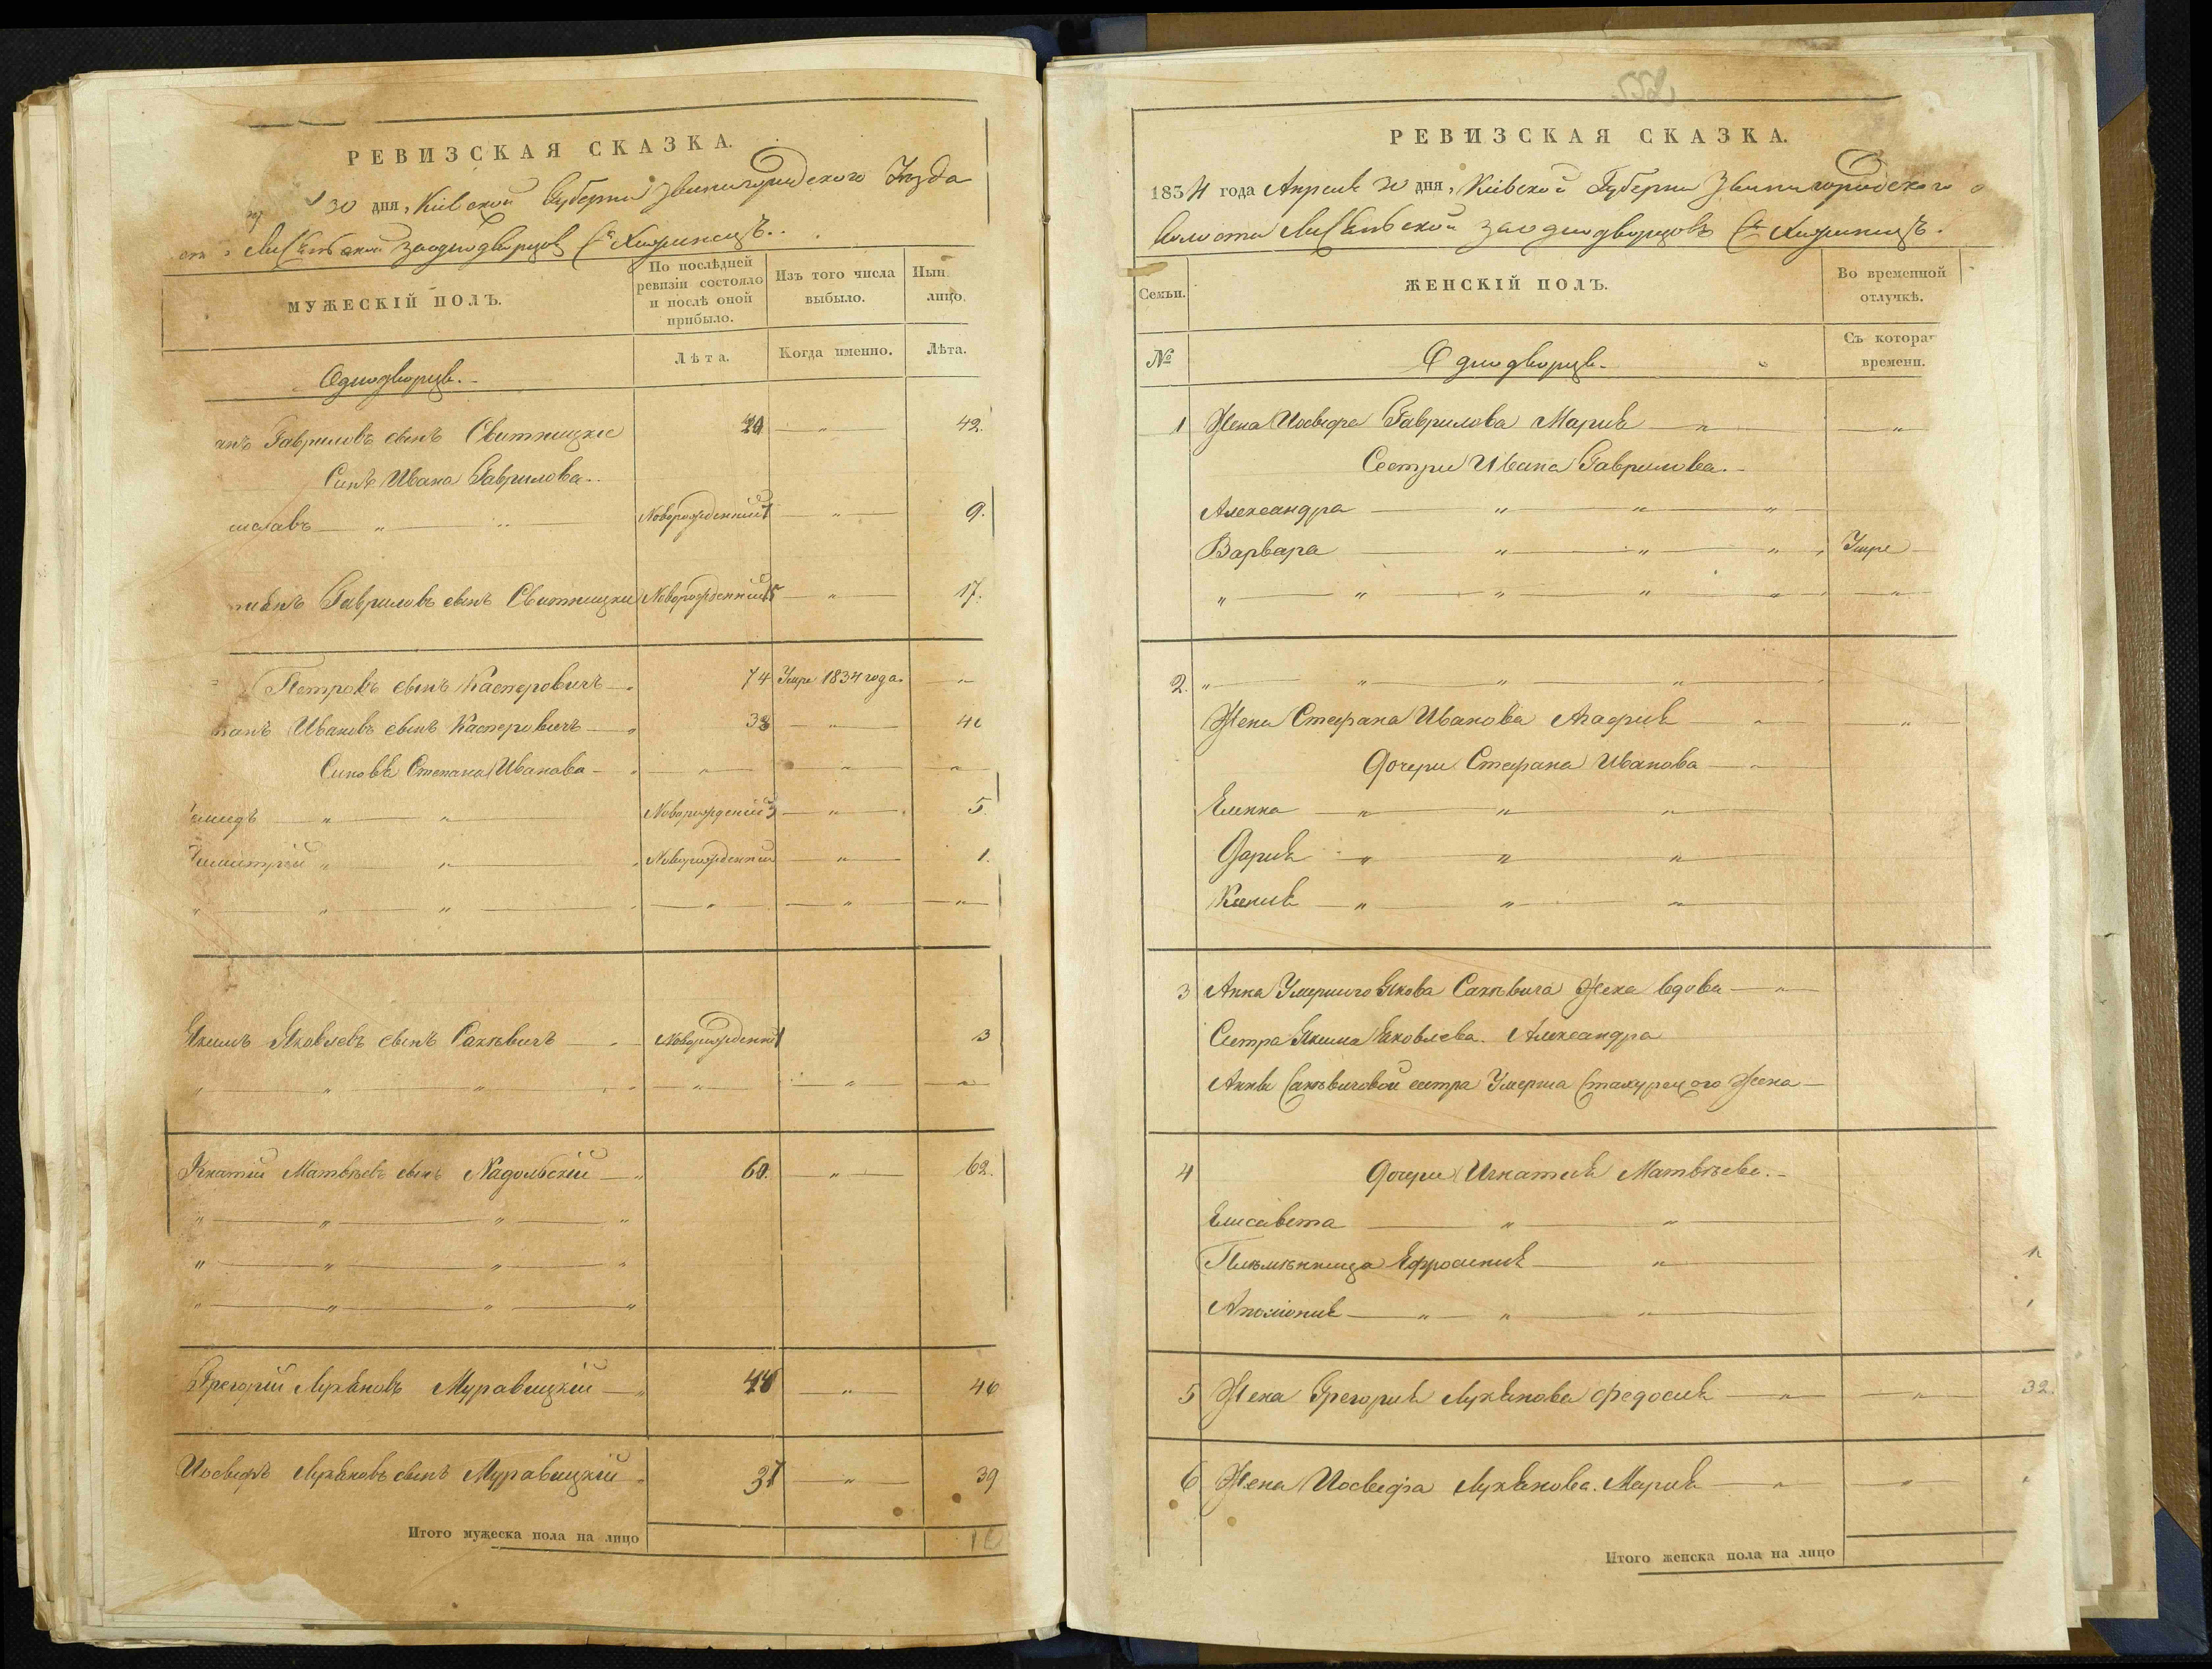 РЕВИЗСКАЯ СКАЗКА.
30 дня, Кіевской Губерніи Звенигородскаго Уѣзда
заоднодворцовъ
МУЖЕСКІЙ ПОЛЪ.
По послѣдней ревизіи состояло и послѣ оной прибыло.
Изъ того числа выбыло.
Нын. лицо.
Лѣта.
Когда именно.
Лѣта.
Однодворцы.
анъ Гавриловъ сынъ Свитницкіе " 42.
Синъ Ивана Гаврилова
иславъ " " Новорожденній 1 " 9.
Гавриловъ сынъ Свитницки Новорожденній " 17.
Петровъ сынъ Касперовичъ 74 Умре 1834 года "
панъ Ивановъ сынъ Касперовичъ "
Синовѣ Степана Иванова " " "
" " Новорожденій 3 " 5
имитрій " " Новорожденній " 1.
" " " " " "
Якимъ Яковлевъ сынъ Сахневичъ Новорожденній 1 3
" " " " " "
Матвѣевъ сынъ Надольскій 60. " 62.
" " " "
" " " "
" " " "
Грегорій Лукяновъ Муравицкій " 46
Иосифъ Лукяновъ сынъ Муравицкій " 39
Итого мужеска пола на лицо
РЕВИЗСКАЯ СКАЗКА.
1834 года Апреля 30 дня, Кіевской Губерніи Звенигородского
Волости заоднодворцовъ
Семьи.
ЖЕНСКІЙ ПОЛЪ.
Во временной отлучкѣ.
№
Однодворцы.
Съ котора
времени.
1 Жена Иосифа Гаврилова Марія " "
Сестри Ивана Гаврилова.
Александра " " "
Варвара " " " Умре
" " " " " "
2. " " " "
Жена Стефана Иванова Агафія " "
Дочери Стефана Иванова
Елинна " " "
Дарія " " "
Ксенія " " "
3 Анна Умершого Якова Сахневича Жена вдова "
Сестра Якима Яковлева. Александра
Анны Сахневичовой сестра Умерша Жена
4 Дочери Игнатія Матвѣева.
Елисавета " "
Племѣнница Ефросинія "
Аполіонія " " "
5 Жена Грегорія Лукянова Федосія " " 32.
6 Жена Иосифа Лукянова. Марія " "
Итого женска пола на лицо